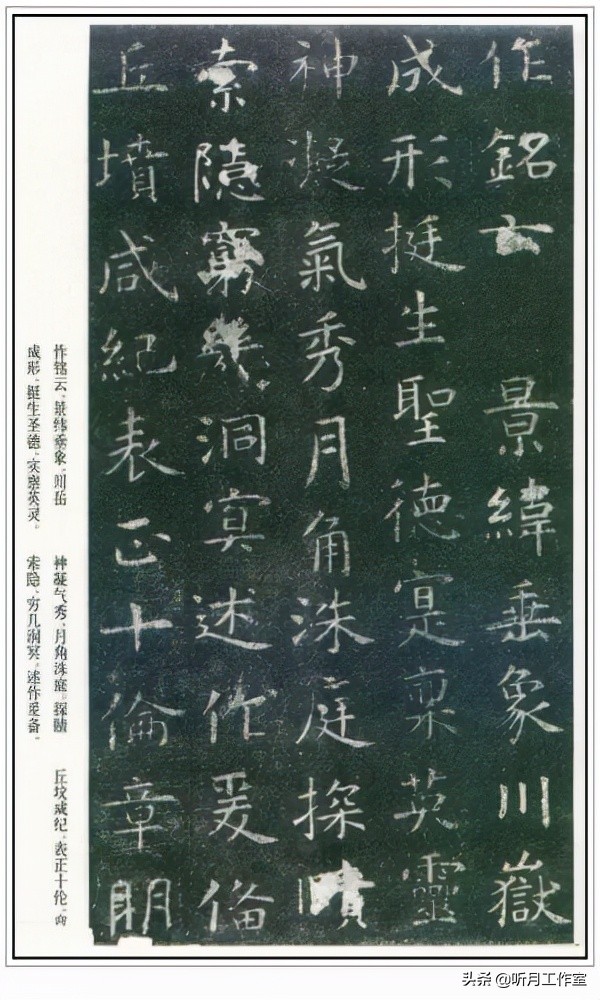 作銘云 景緯垂象川嶽
成形挺生聖德寔稟英靈
神凝氣秀月角洙庭探賾
索隱窮幾洞冥述作爰俻
丘墳咸紀表正十倫章明
作铭云,景纬垂象,川岳
成形,挺生圣德,实禀英灵。
神凝气秀,月角洙庭。探赜
索隐,穷几洞冥。述作爰备。
丘坟咸纪,表正十伦,
头条 @听月工作室